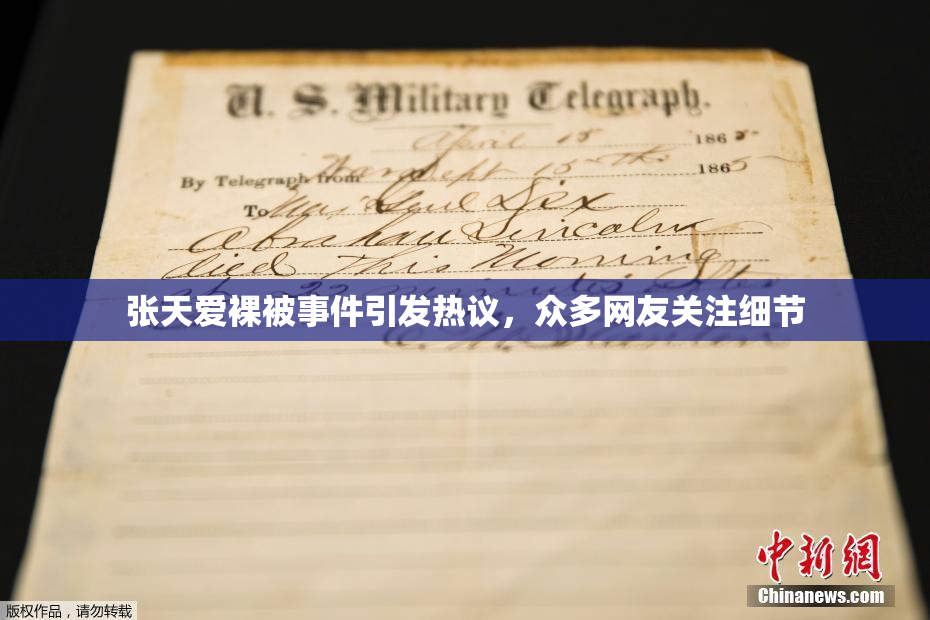 U. S. Military Telegraph.
April 15 1865
By Telegraph from War Dept 15th 1865
To Maj Genl Dix
Abraham Lincoln
died This Morning
at 22 minutes after
张天爱裸被事件引发热议，众多网友关注细节
E. M. Stanton
中新網
Chinanews.com
版权作品，请勿转载